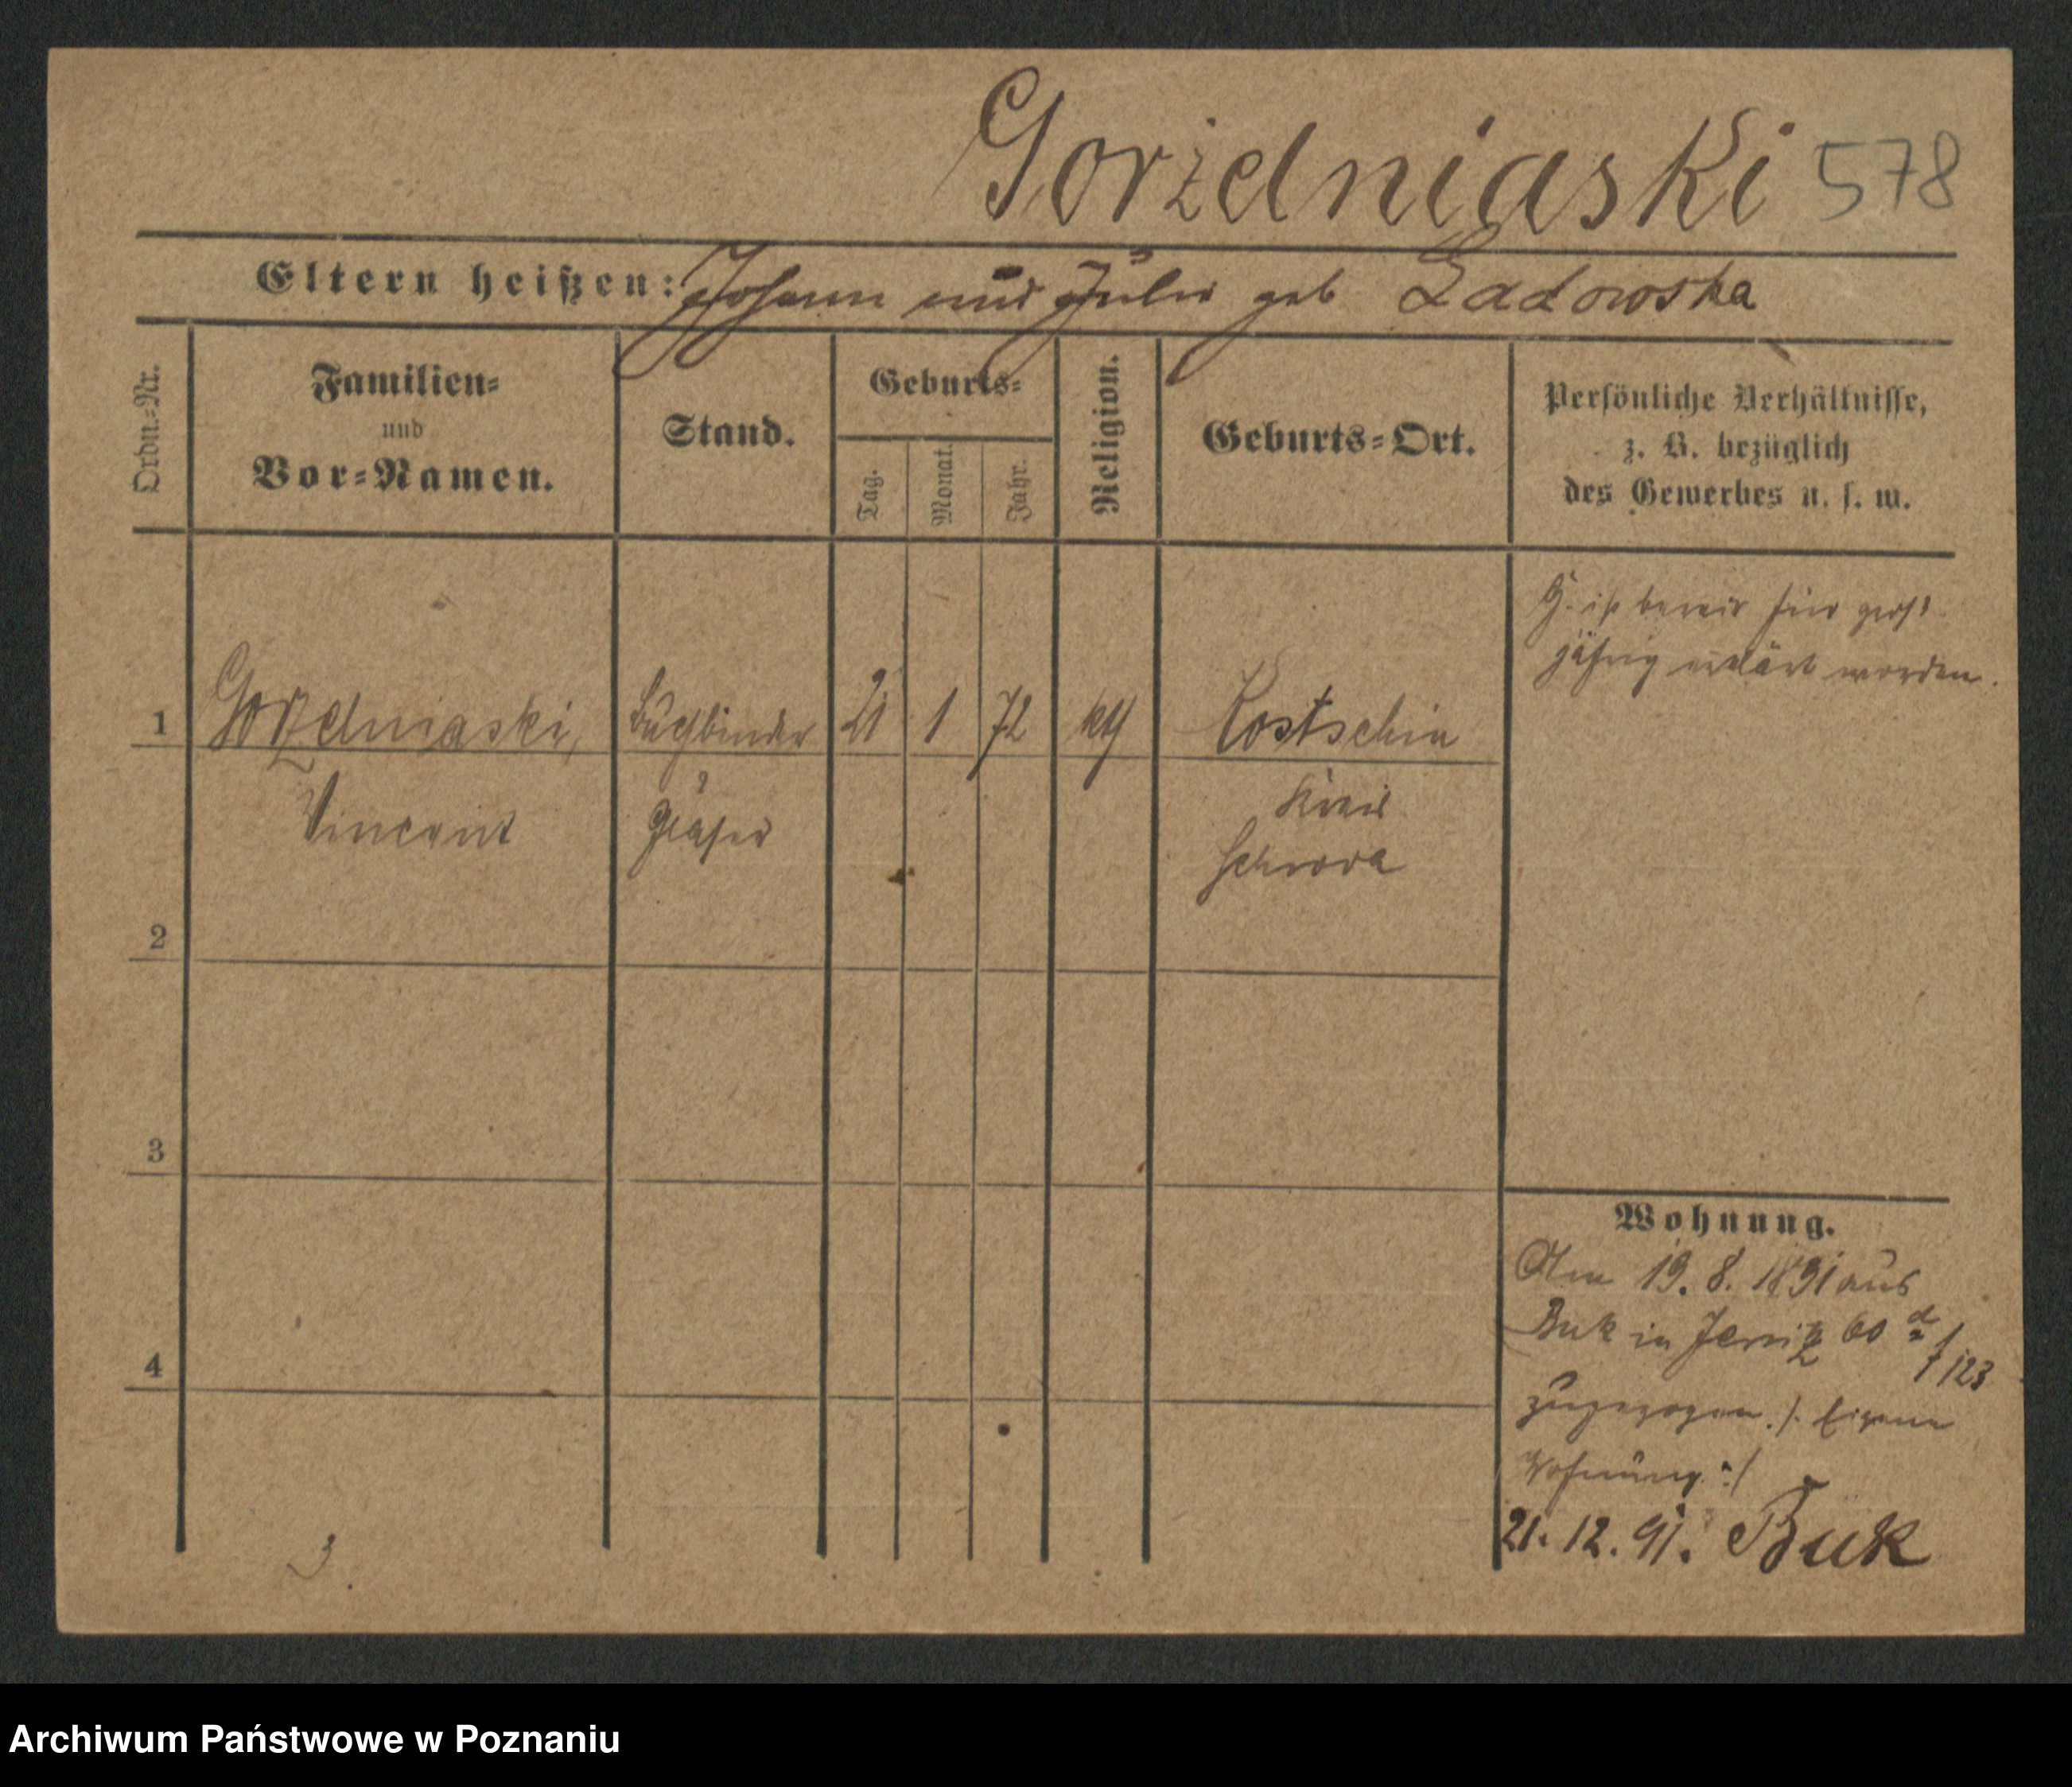 Gorzelniaski 578
Eltern heißen: Johann und Julie geb Ladowska
Ordn.-Nr.
Familien-
und
Vor-Namen.
Stand.
Geburts-
Tag.
Monat.
Jahr.
Religion.
Geburts-Ort.
Persönliche Verhältnisse,
z. B. bezüglich
des Gewerbes u. s. w.
G. ist bereits für groß
jährig erklärt worden.
1 Gorzelniaski, Buchbinder 21 1 72 kth Kostschin
Vincent
Kreis
Schroda
2
3
4
Wohnung.
Am 19. 8. 1891 aus
Buk in Jersitz 60
f 123
zugezogen. /. Eigene
Wohnung :/
21. 12. 91. Buk
3.
Archiwum Państwowe w Poznaniu